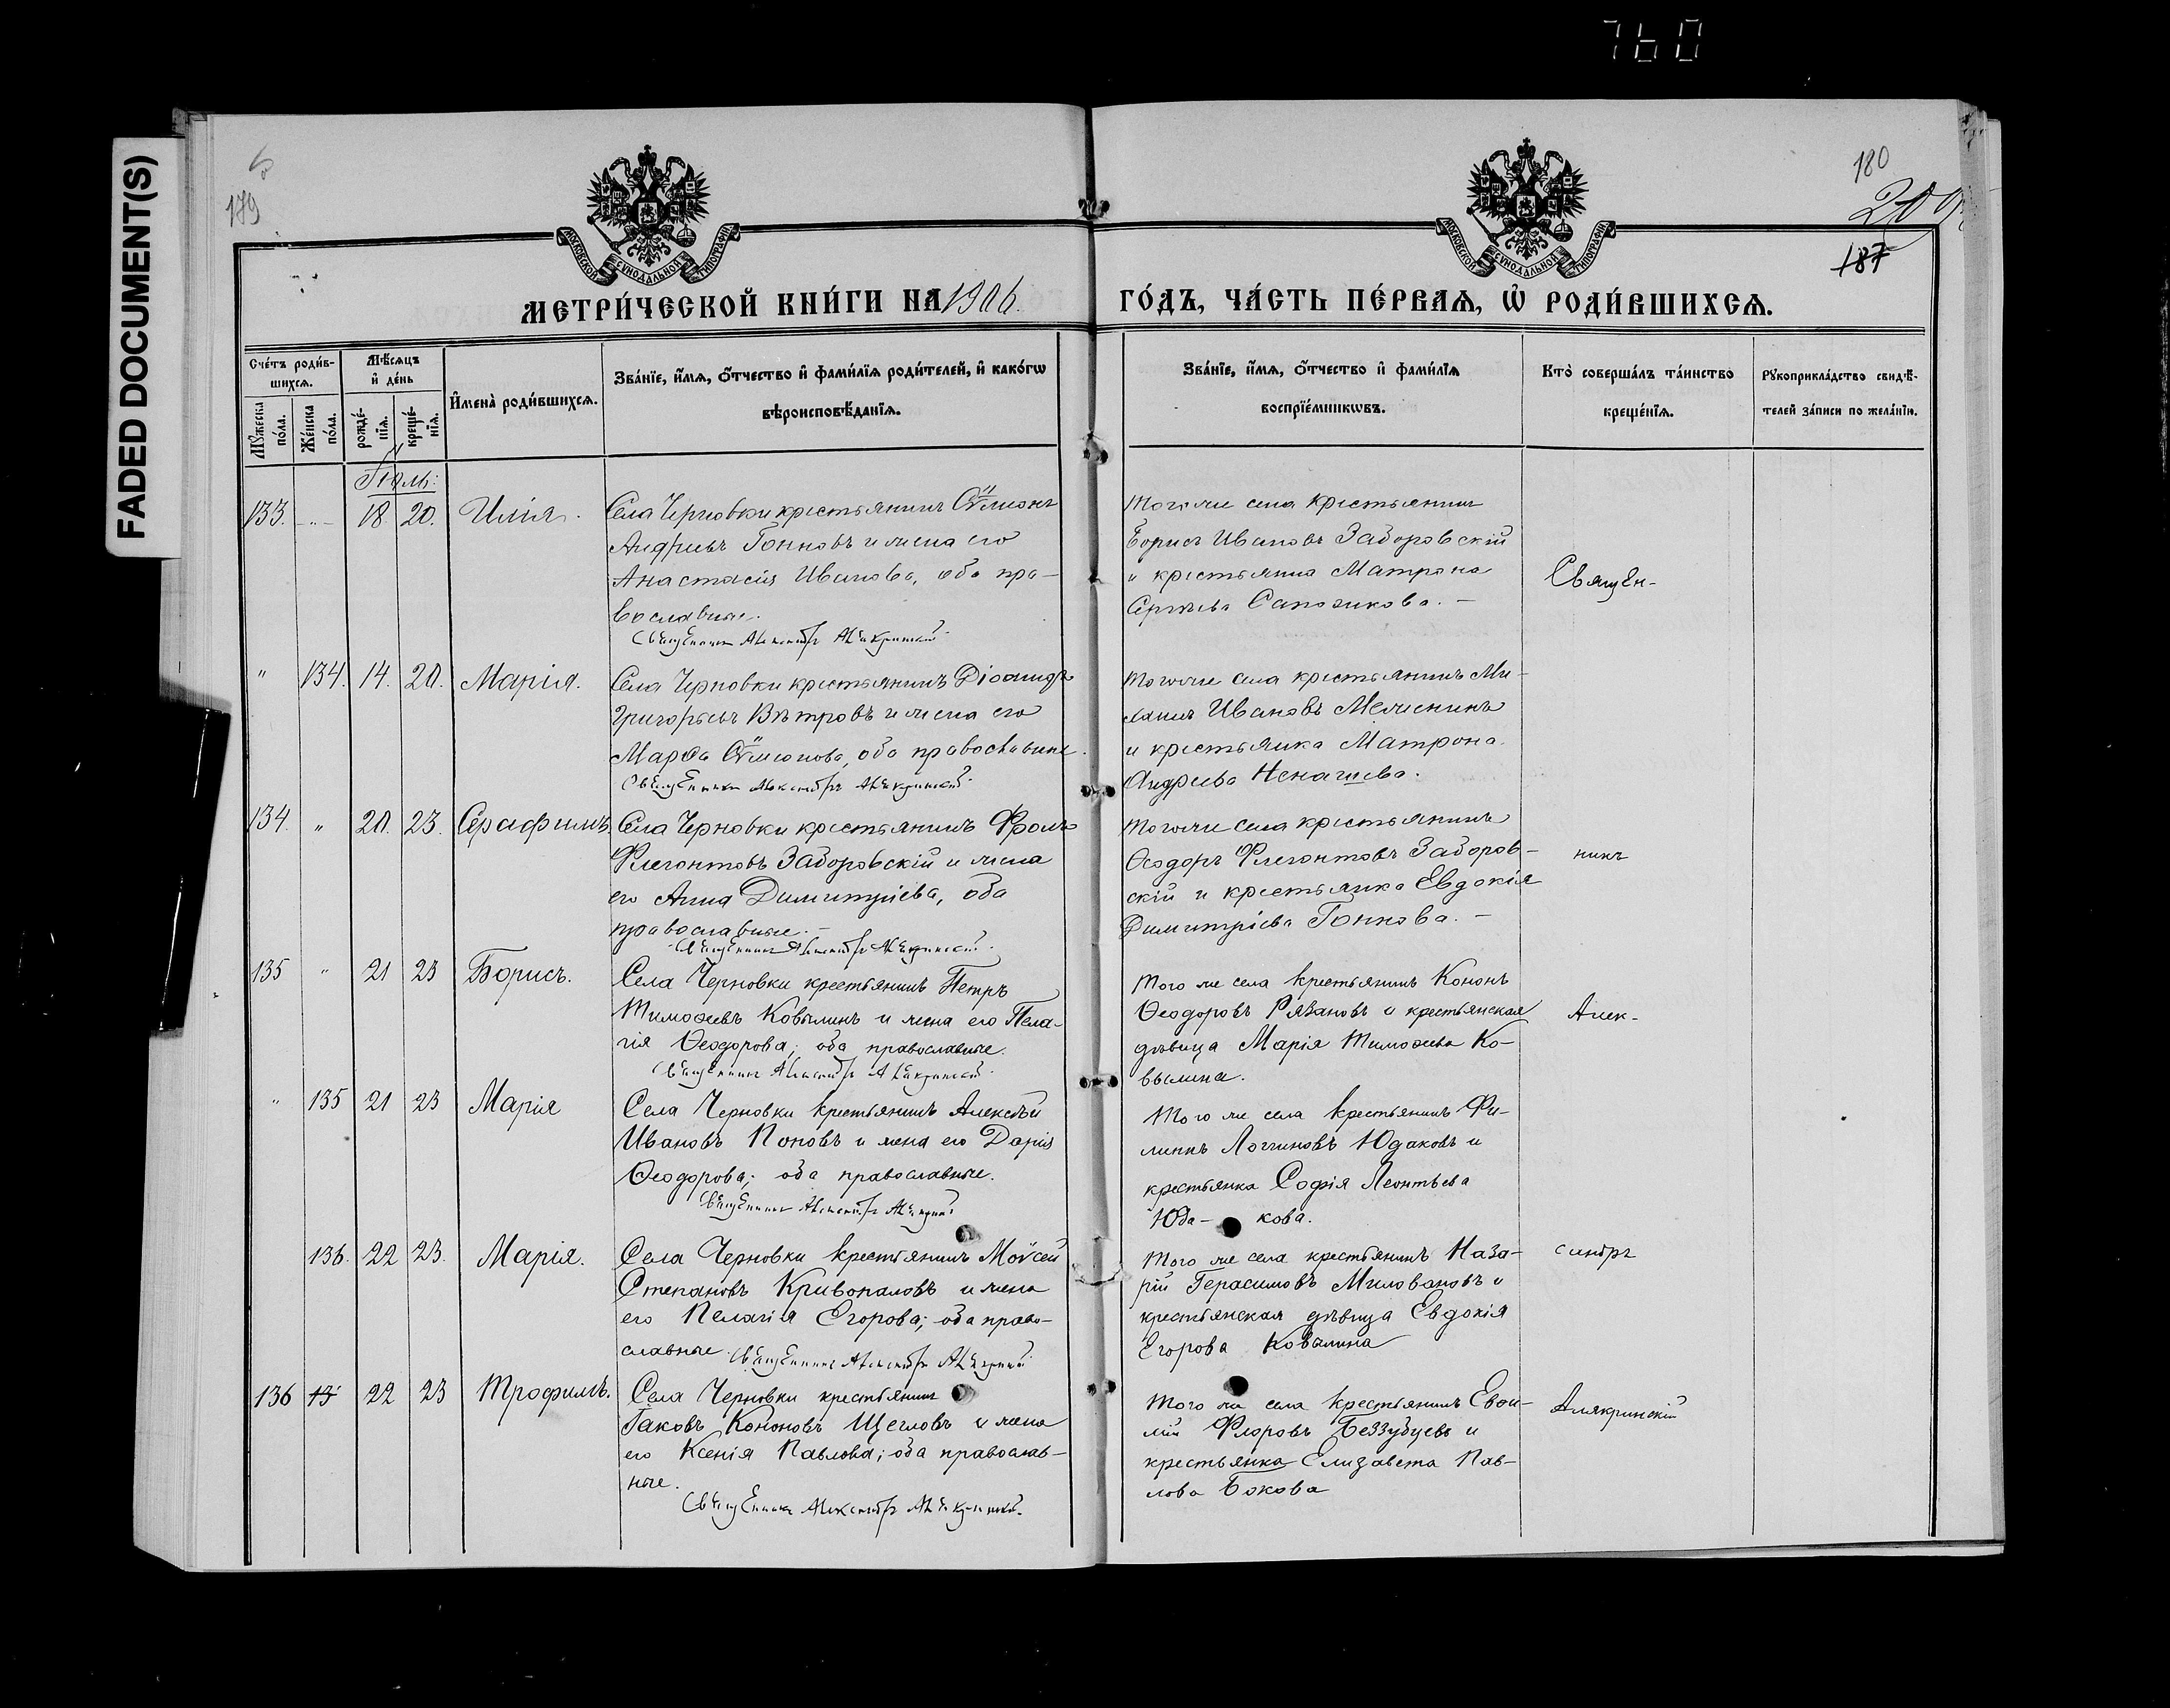 760
FADED DOCUMENT(S)
179
180
209
187
МОСКОВСКОЙ СѴНОДАЛЬНОЙ ТИПОГРАФІИ
МОСКОВСКОЙ СѴНОДАЛЬНОЙ ТИПОГРАФІИ
МЕТРИ́ЧЕСКОЙ КНИ́ГИ НА 1906.
ГО́ДЪ, ЧА́СТЬ ПЕ́РВАѦ, Ѡ҆ РОДИ́ВШИХСѦ.
Сче́тъ роди́в-
шихсѧ.
Мꙋ́жеска по́ла.
Же́нска по́ла.
Мѣ́сѧцъ
и҆ де́нь
рожде́-
нїѧ.
креще́-
нїѧ.
И҆мена̀ роди́вшихсѧ.
Зва́нїе, и҆́мѧ, ѻ҆́тчество и҆ фами́лїѧ роди́телей, и҆ како́гѡ
вѣроисповѣ́данїѧ.
Зва́нїе, и҆́мѧ, ѻ҆́тчество и҆ фами́лїѧ
воспрїе́мникѡвъ.
Кто̀ соверша́лъ та́инство
креще́нїѧ.
Рꙋкоприкла́дство свидѣ́-
телей за́писи по жела́нїю.
Іюль:
133. „ 18. 20. Илія.
Села Черновки крестьянинъ Сѵмеонъ
Андреевъ Гонновъ и жена его
Анастасія Иванова, оба пра-
вославные.
Священникъ Александръ Алякринскій.
Тогоже села крестьянинъ
Борисъ Ивановъ Заборовскій
и крестьянка Матрона
Сергѣева Сапожикова. –
Священ-
„ 134. 14. 20. Марія.
Села Черновки крестьянинъ Діомидъ
Григорьевъ Вѣтровъ и жена его
Марѳа Сѵмеонова, оба православные.
Священникъ Александръ Алякринскій.
Тогоже села крестьянинъ Ми-
хаилъ Ивановъ Мелискинъ
и крестьянка Матрона
Андреева Ненашева.
134. „ 20. 23. Серафимъ
Села Черновки крестьянинъ Фролъ
Флегонтовъ Заборовскій и жена
его Анна Димитріева, оба
православные. –
Священникъ Александръ Алякринскій.
Тогоже села крестьянинъ
Ѳеодоръ Флегонтовъ Заборов-
скій и крестьянка Евдокія
Димитріева Гоннова. –
никъ
135 „ 21 23 Борисъ.
Села Черновки крестьянинъ Петръ
Тимоѳеевъ Ковылинъ и жена его Пела-
гія Ѳеодорова; оба православные.
Священникъ Александръ Алякринскій.
Того же села крестьянинъ Кононъ
Ѳеодоровъ Рязановъ и крестьянская
дѣвица Марія Тимоѳеева Ко-
вылина.
Алек-
„ 135 21 23 Марія
Села Черновки крестьянинъ Алексѣй
Ивановъ Поповъ и жена его Дарія
Ѳеодорова; оба православные.
Священникъ Александръ Алякринскій
Того же села крестьянинъ Фи-
липпъ Логгиновъ Юдаковъ и
крестьянка Софія Леонтьева
Юда- кова.
136. 22 23. Марія.
Села Черновки крестьянинъ Моѵсей
Степановъ Кривопаловъ и жена
его Пелагія Егорова; оба право-
славные. Священникъ Александръ Алякринскій
Того же села крестьянинъ Наза-
рій Герасимовъ Миловановъ и
крестьянская дѣвица Евдокія
Егорова Ковылина
сандръ
136 13 22 23 Трофимъ.
Села Черновки крестьянинъ
Іаковъ Кононовъ Щегловъ и жена
его Ксенія Павлова; оба православ-
ные.
Священникъ Александръ Алякринскій.
Того же села крестьянинъ Евѳи-
мій Флоровъ Беззубцевъ и
крестьянка Елизавета Пав-
лова Бокова
Алякринскій